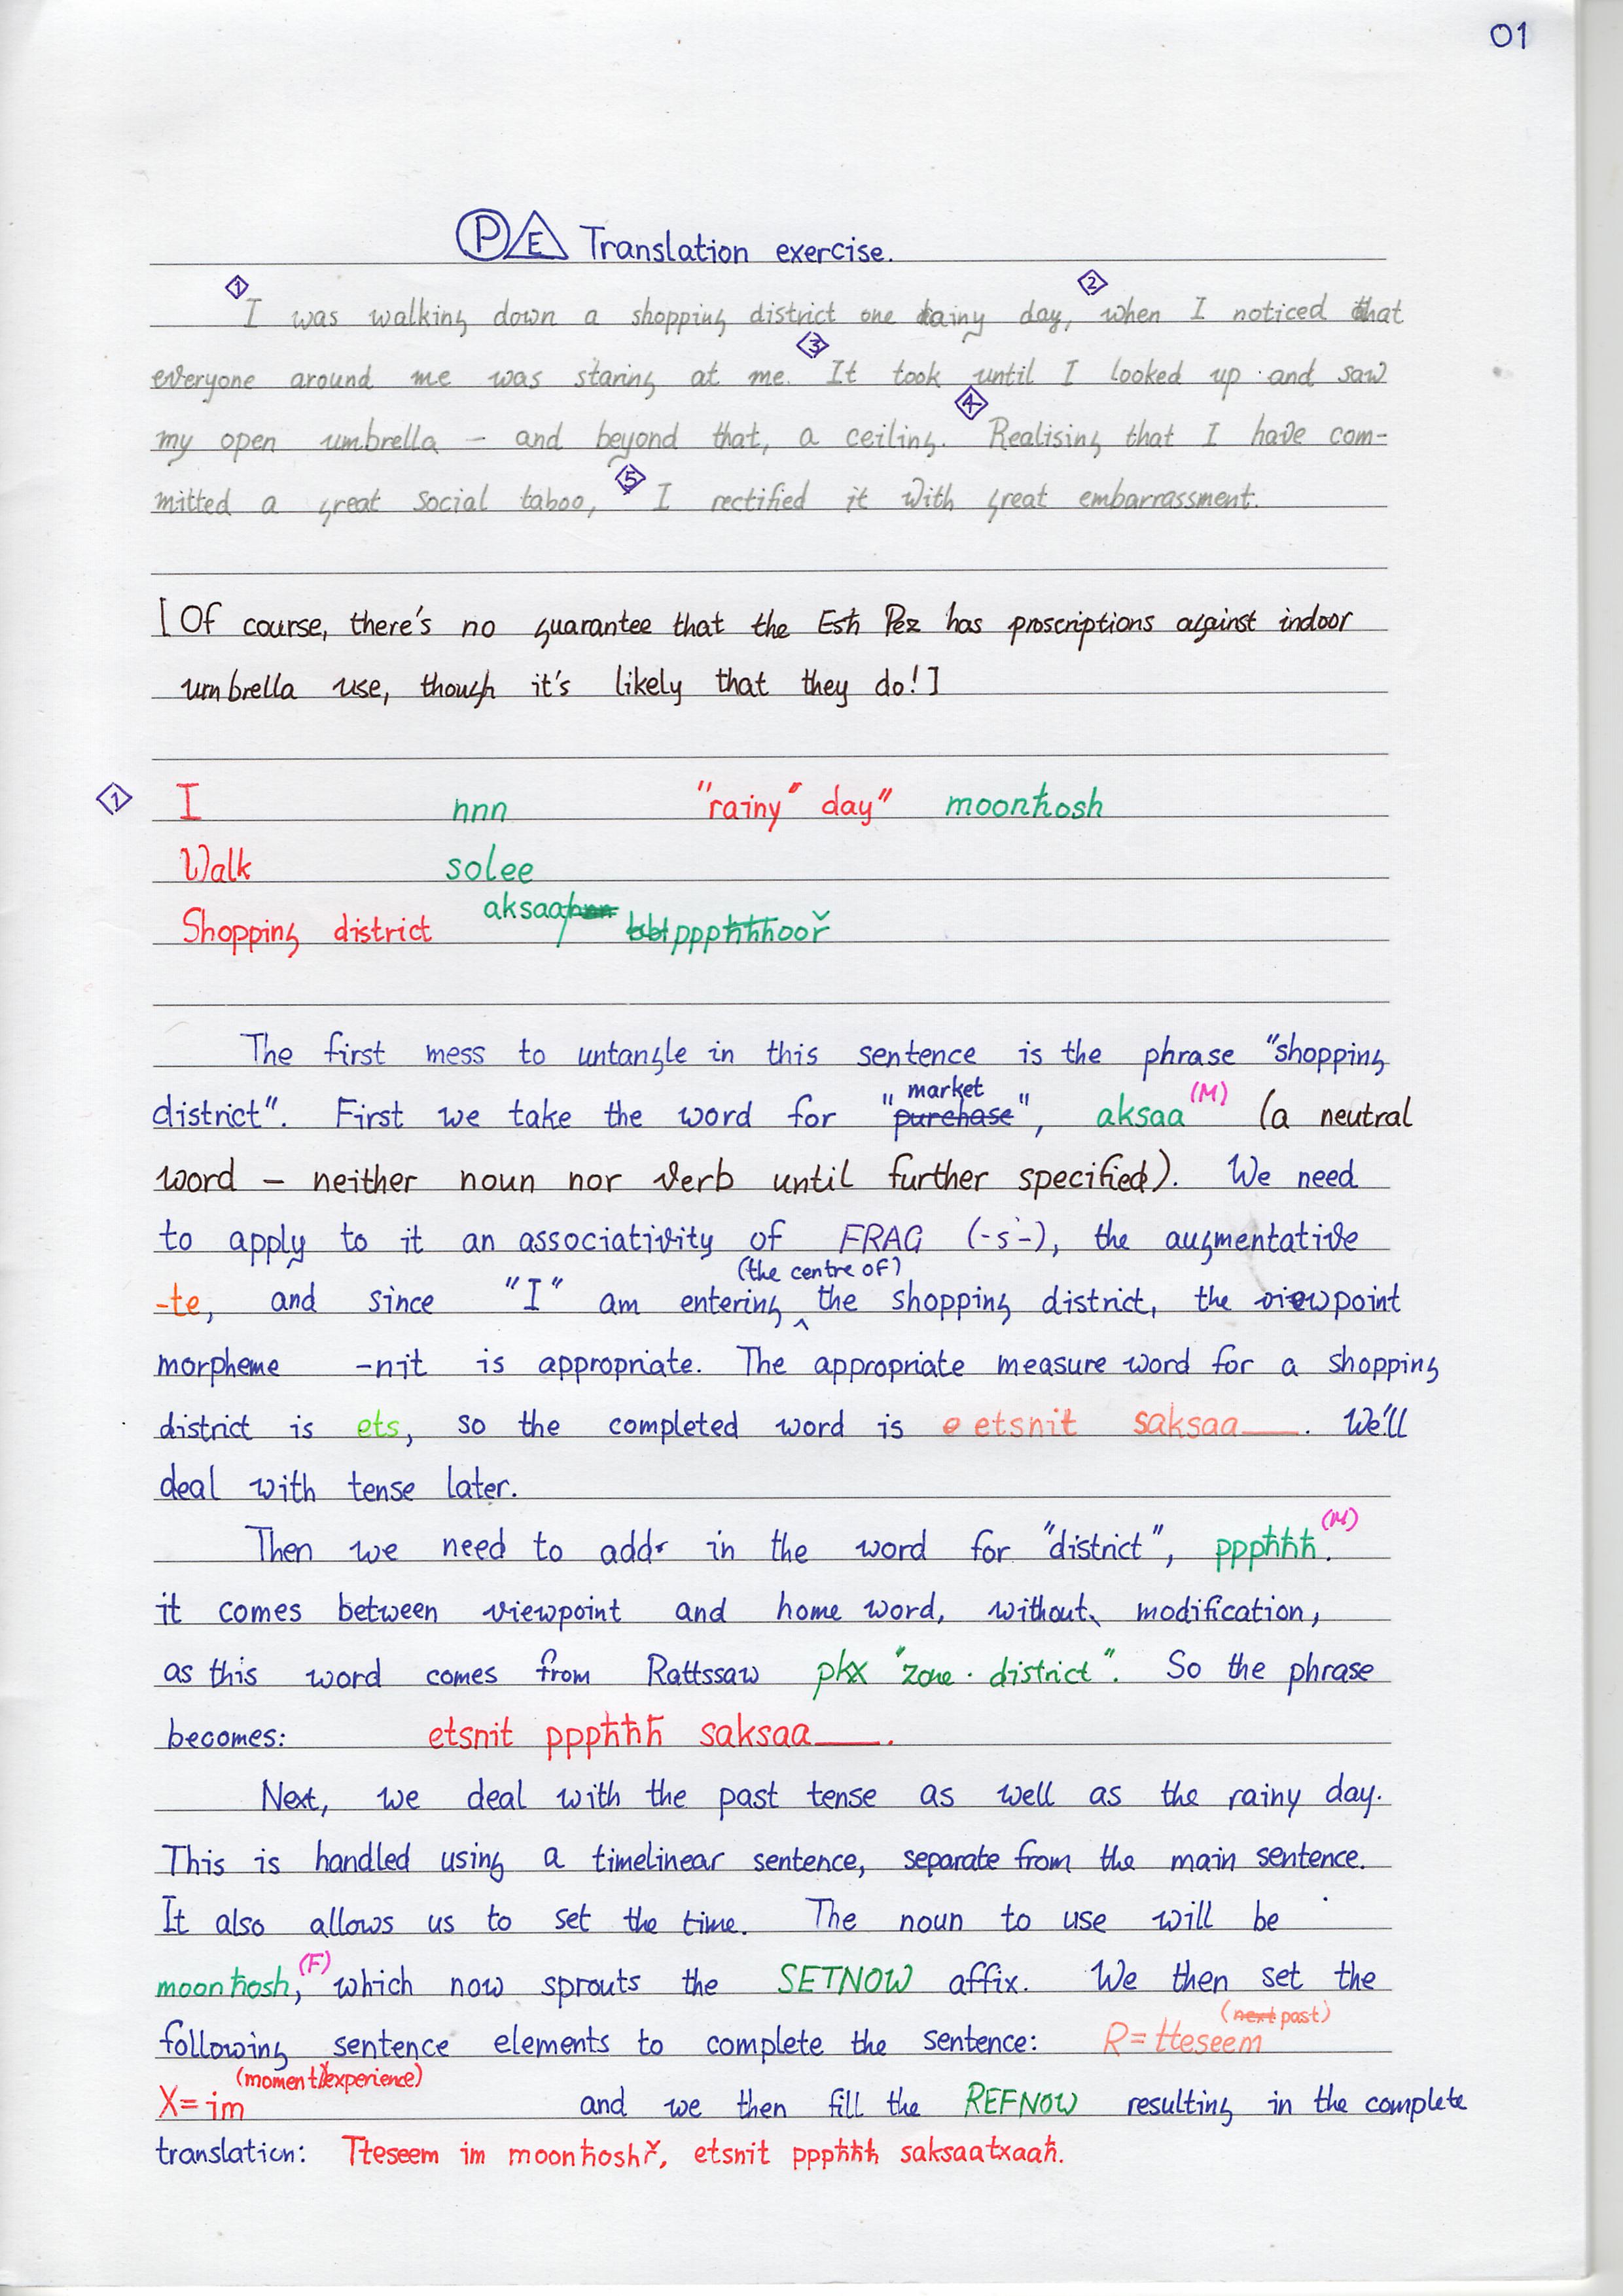 01
P E Translation exercise.
1 I was walking down a shopping district one rainy day, 2 when I noticed that
everyone around me was staring at me. 3 It took until I looked up and saw
my open umbrella – and beyond that, a ceiling. 4 Realising that I have com-
mitted a great social taboo, 5 I rectified it with great embarrassment.
[Of course, there's no guarantee that the Esħ Pez has proscriptions against indoor
umbrella use, though it's likely that they do!]
1 I nnn "rainy" day" moonħosh
Walk solee
Shopping district aksaa pppħħħooř
The first mess to untangle in this sentence is the phrase "shopping
district". First we take the word for "purchase market", aksaa (M) (a neutral
word – neither noun nor verb until further specified). We need
to apply to it an associativity of FRAG (-s-), the augmentative
-te, and since "I" am entering (the centre of) the shopping district, the viewpoint
morpheme -nit is appropriate. The appropriate measure word for a shopping
district is ets, so the completed word is etsnit saksaa___. We'll
deal with tense later.
Then we need to add in the word for "district", pppħħħ (M).
it comes between viewpoint and home word, without modification,
as this word comes from Rattssaw pkx "zone · district". So the phrase
becomes: etsnit pppħħħ saksaa___.
Next, we deal with the past tense as well as the rainy day.
This is handled using a timelinear sentence, separate from the main sentence.
It also allows us to set the time. The noun to use will be
moonħosh, (F) which now sprouts the SETNOW affix. We then set the
following sentence elements to complete the sentence: R= tteseem (next past)
X= im (moment/experience) and we then fill the REFNOW resulting in the complete
translation: Tteseem im moonħoshř, etsnit pppħħħ saksaatxaaħ.